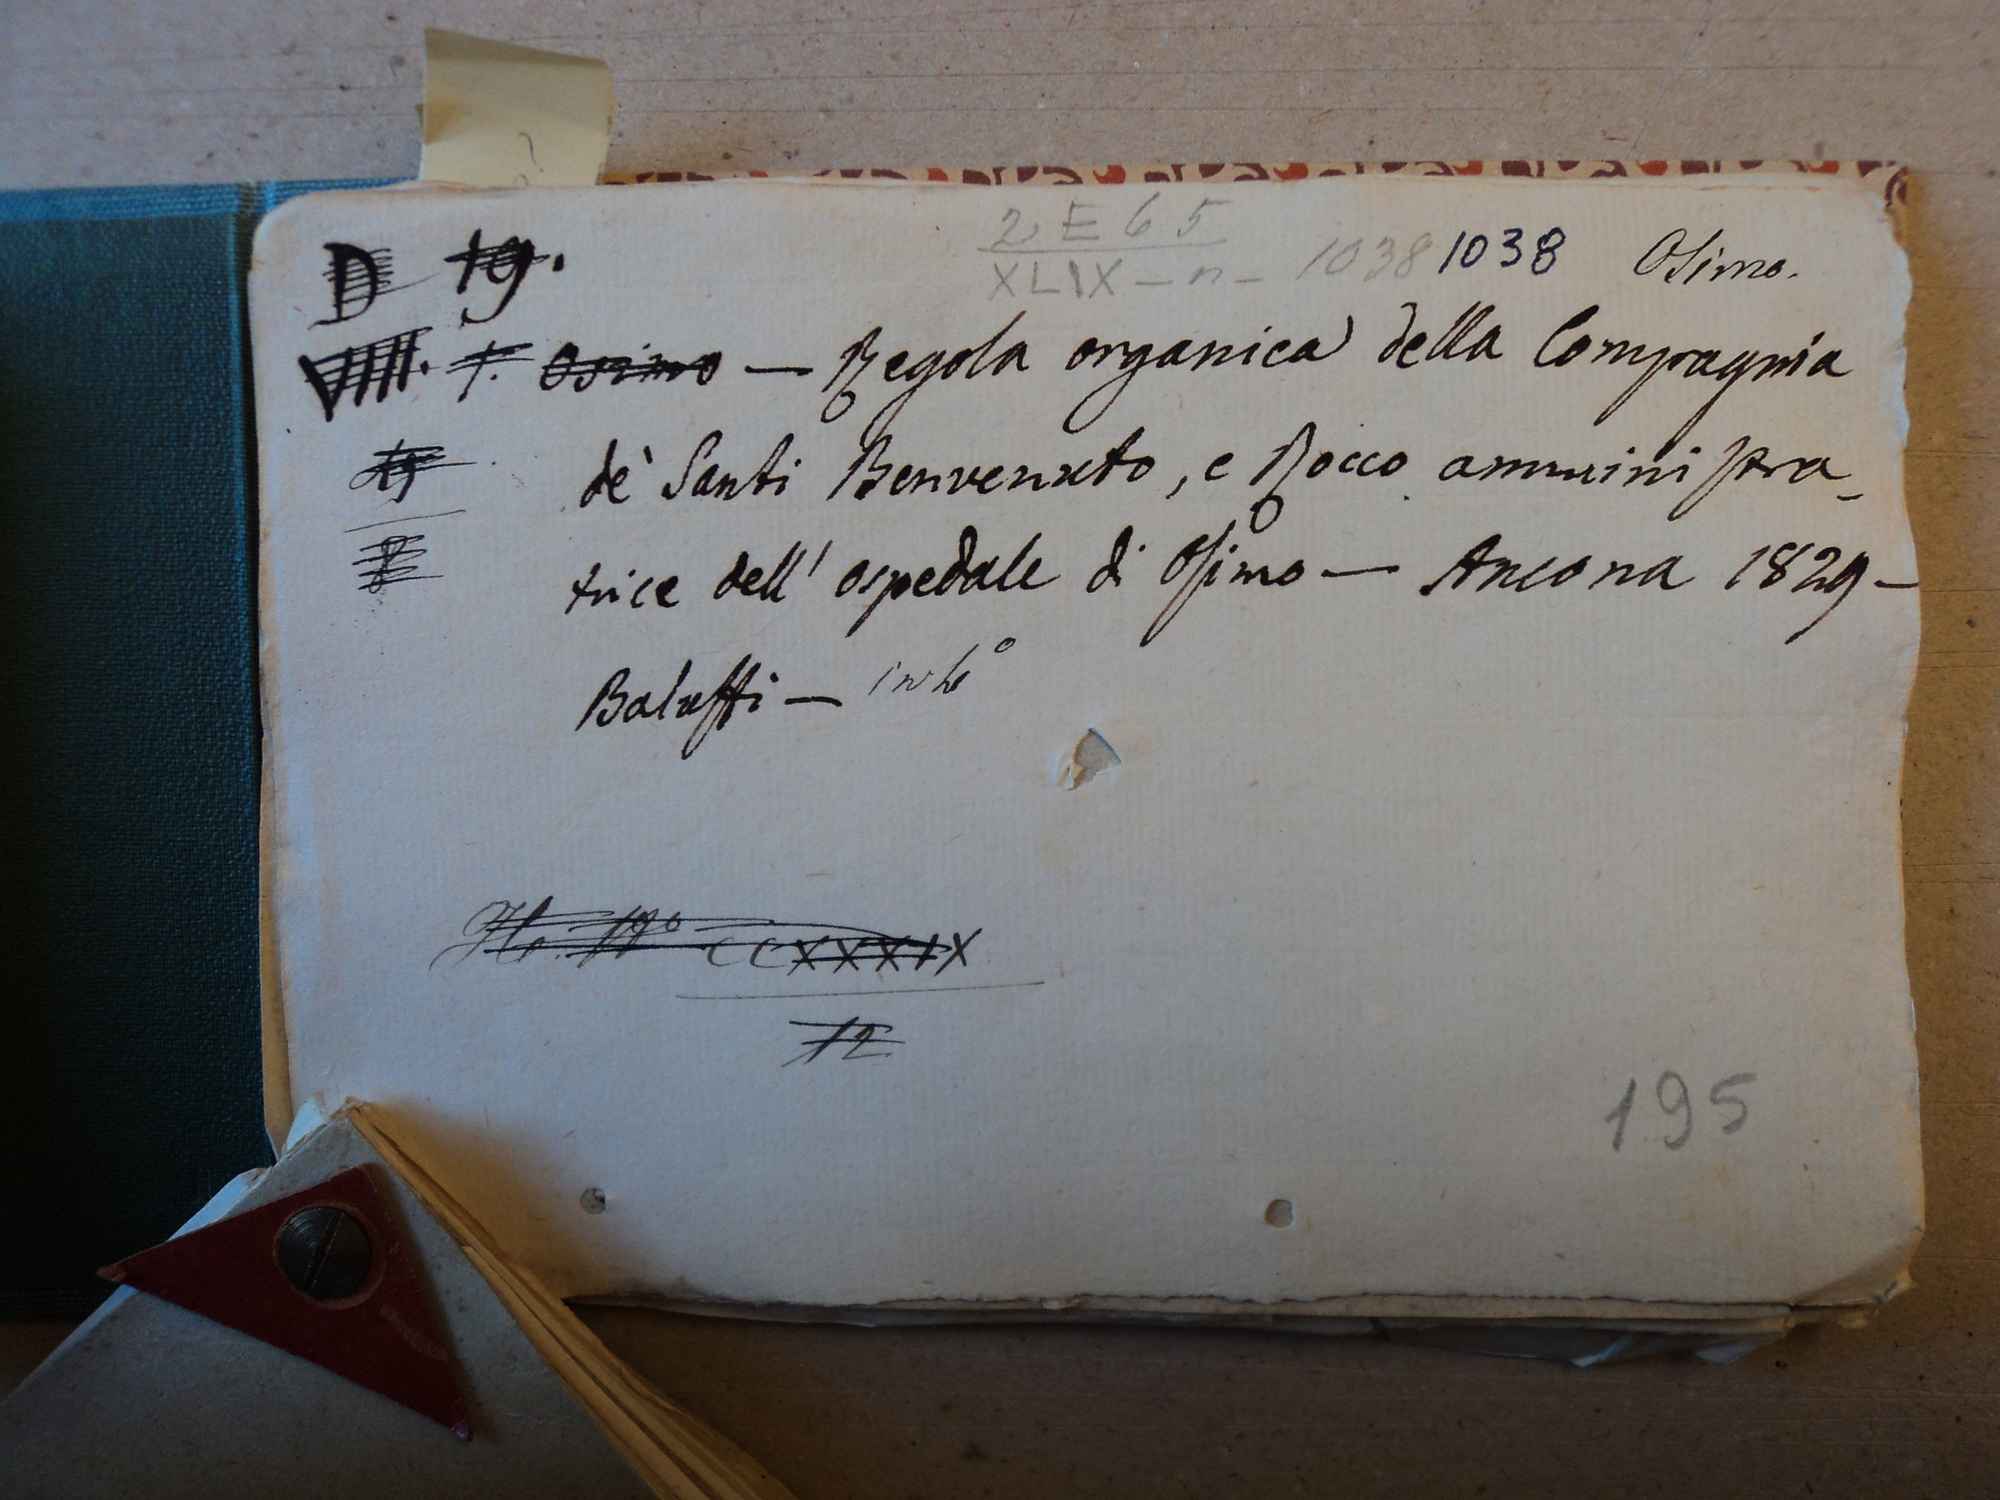 2 E 65
D 19. XLIX - n - 1038 1038 Osimo.
VIIII. Osimo — Regola organica della Compagnia
de' Santi Benvenuto, e Rocco amministra-
trice dell' ospedale di Osimo — Ancona 1829 -
Baluffi — in
CCXXXIX
12
195